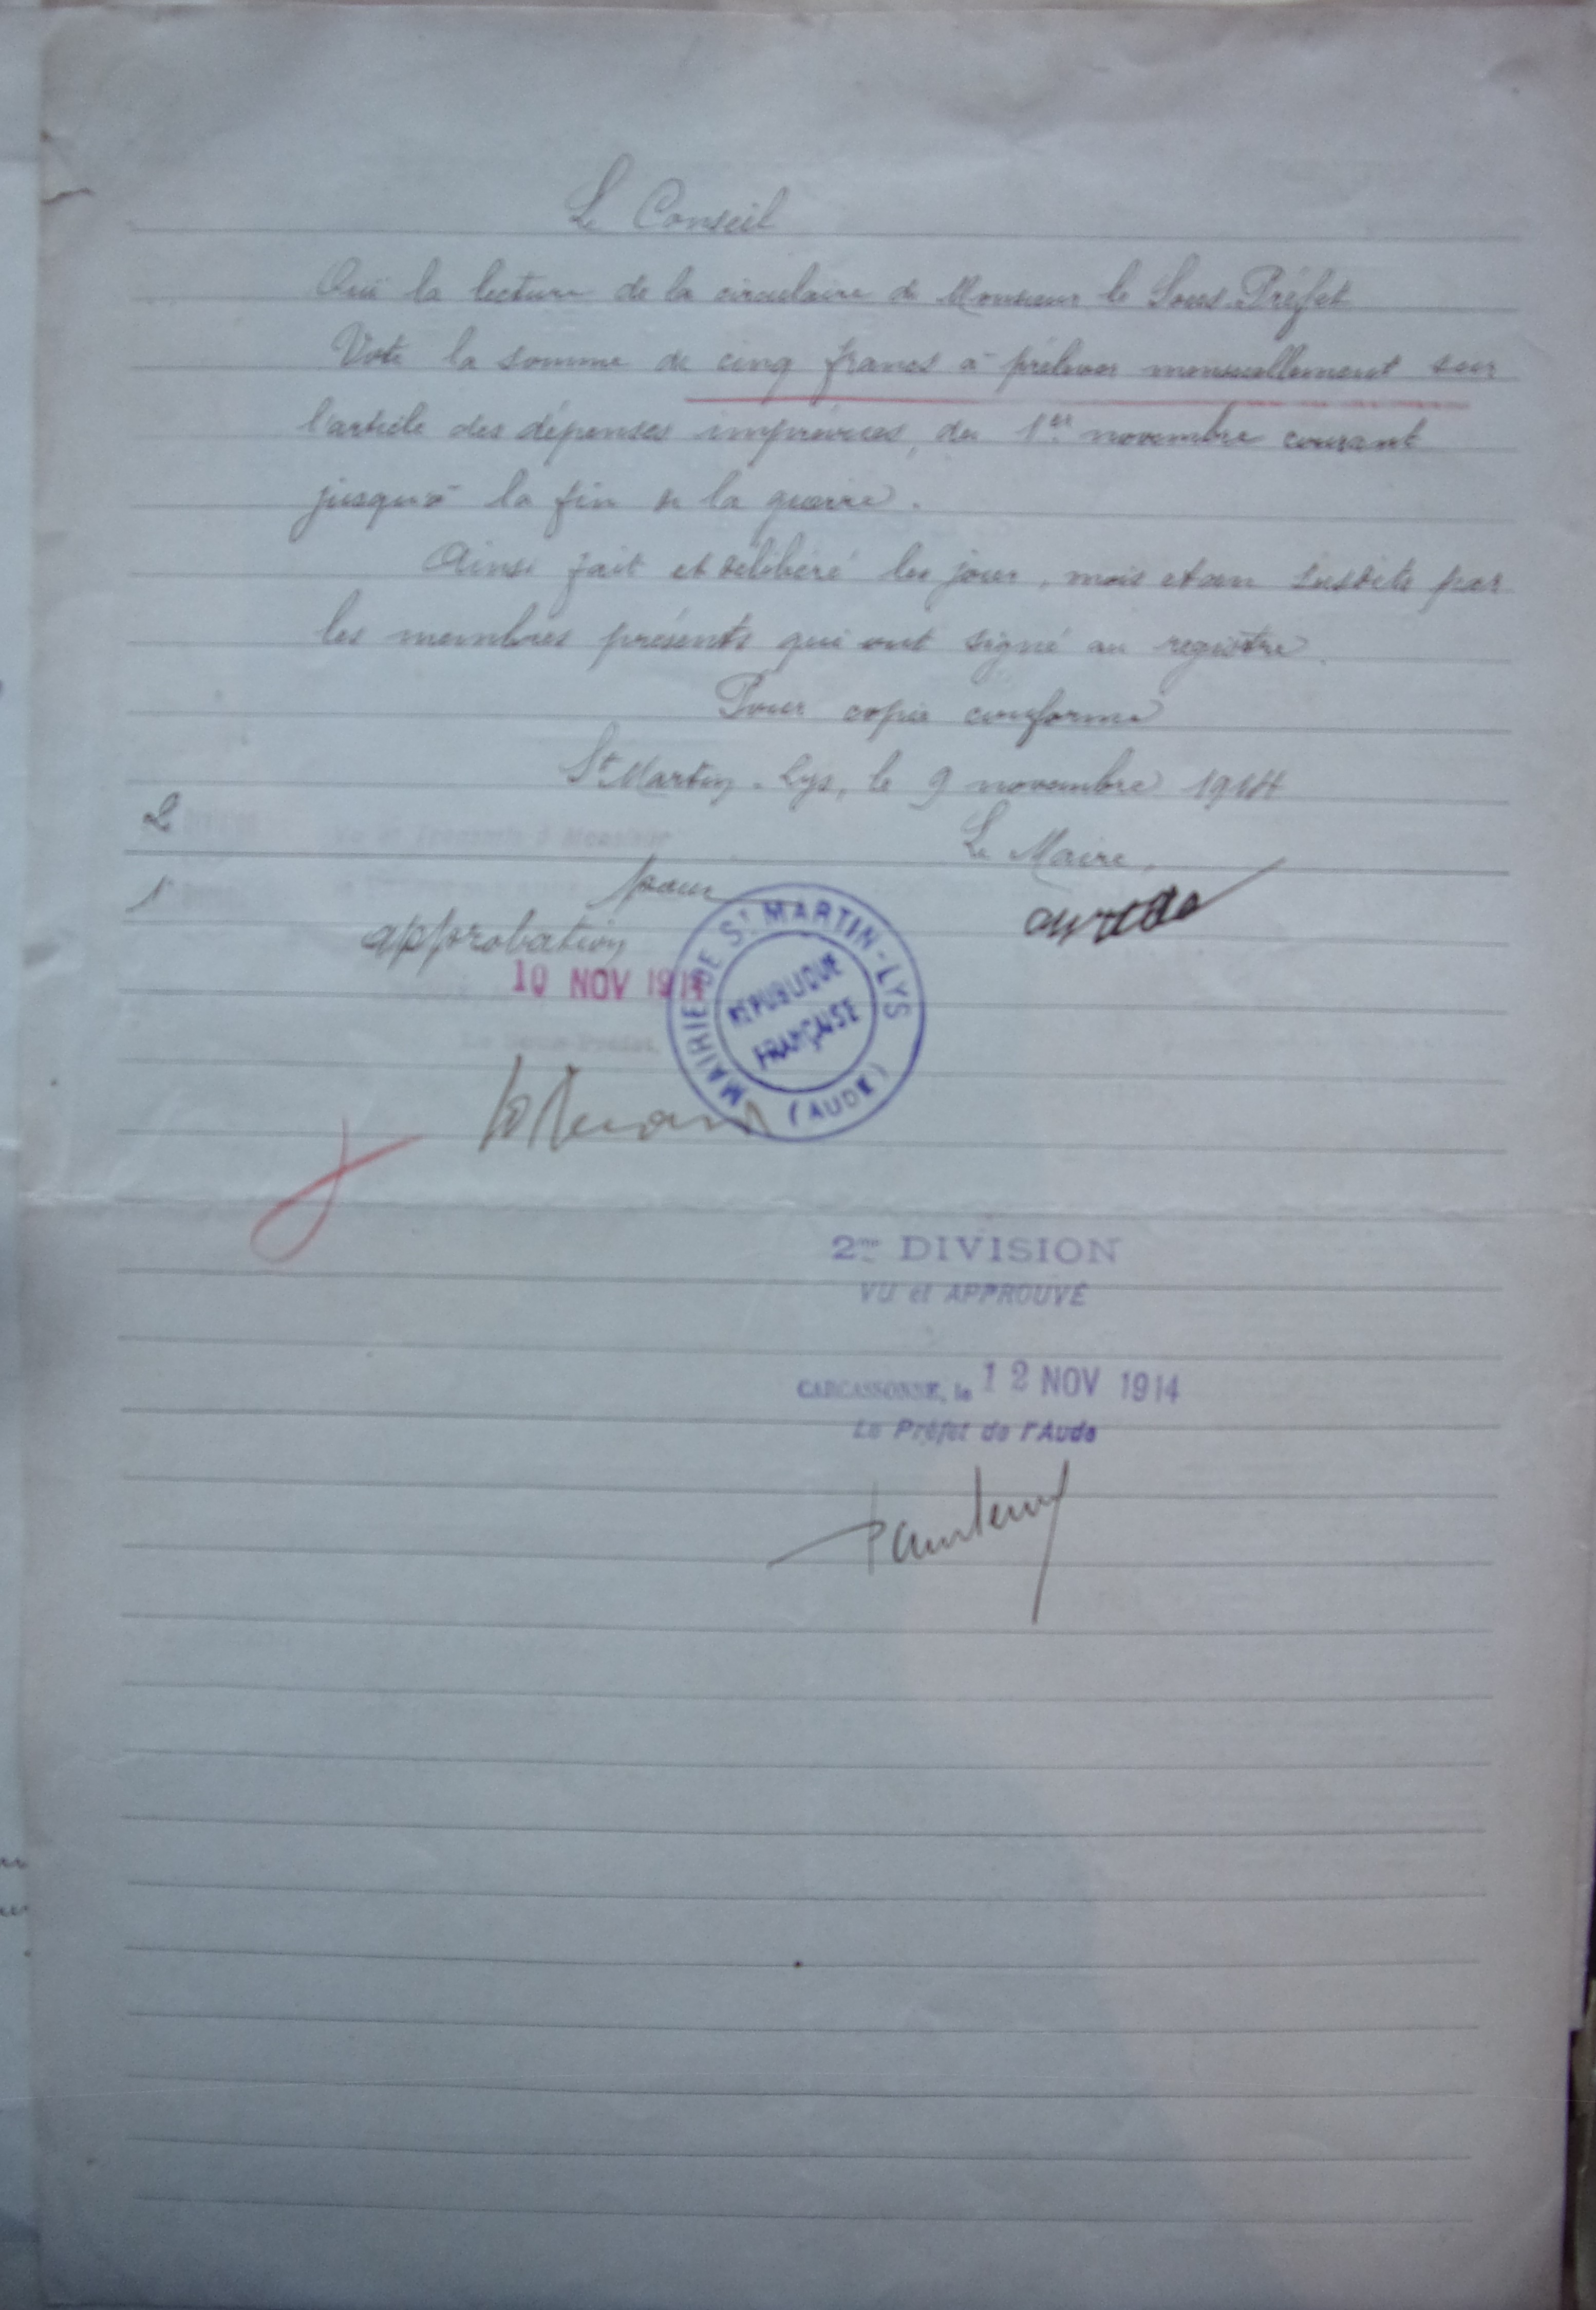 Le Conseil
Ouï la lecture de la circulaire de Monsieur le Sous-Préfet
Vote la somme de cinq francs à prélever mensuellement sur
l'article des dépenses imprévues, du 1er novembre courant
jusqu'à la fin de la guerre.
Ainsi fait et délibéré les jour, mois et an susdits par
les membres présents qui ont signé au registre.
Pour copie conforme
St Martin-Lys, le 9 novembre 1914
Le Maire,
2
1
pour
approbation
10 NOV 1914
MAIRIE DE ST MARTIN-LYS
(AUDE)
REPUBLIQUE
FRANÇAISE
Le Sous-Préfet,
2me DIVISION
VU et APPROUVÉ
CARCASSONNE, le 12 NOV 1914
Le Préfet de l'Aude